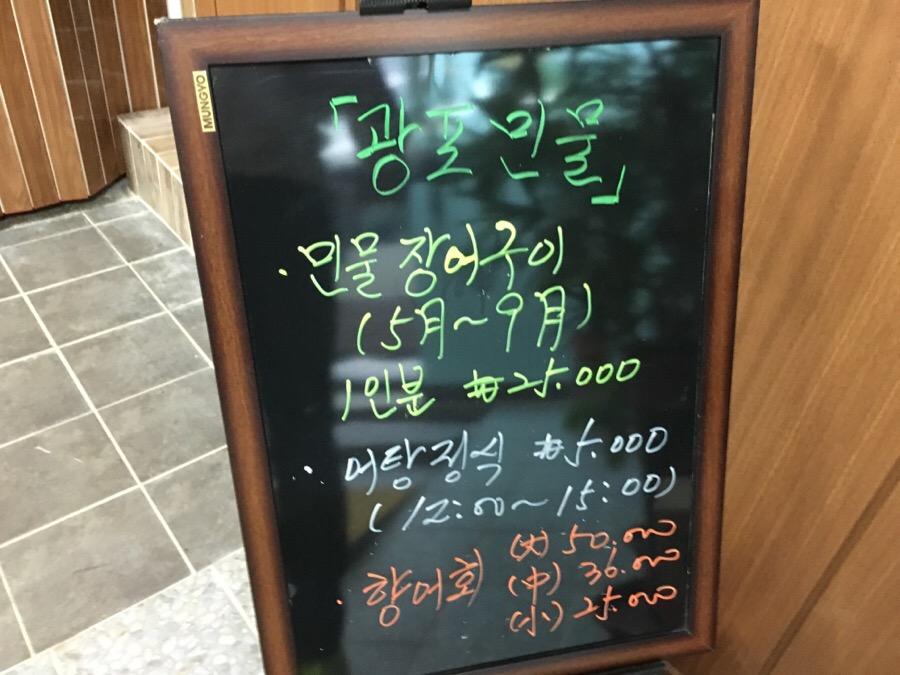 MUNGYO
「광포민물」
· 민물 장어구이
(5月~9月)
1인분 ₩25.000
· 어탕정식 ₩5.000
(12:00~15:00)
· 향어회 (大) 50.000
(中) 36.000
(小) 25.000